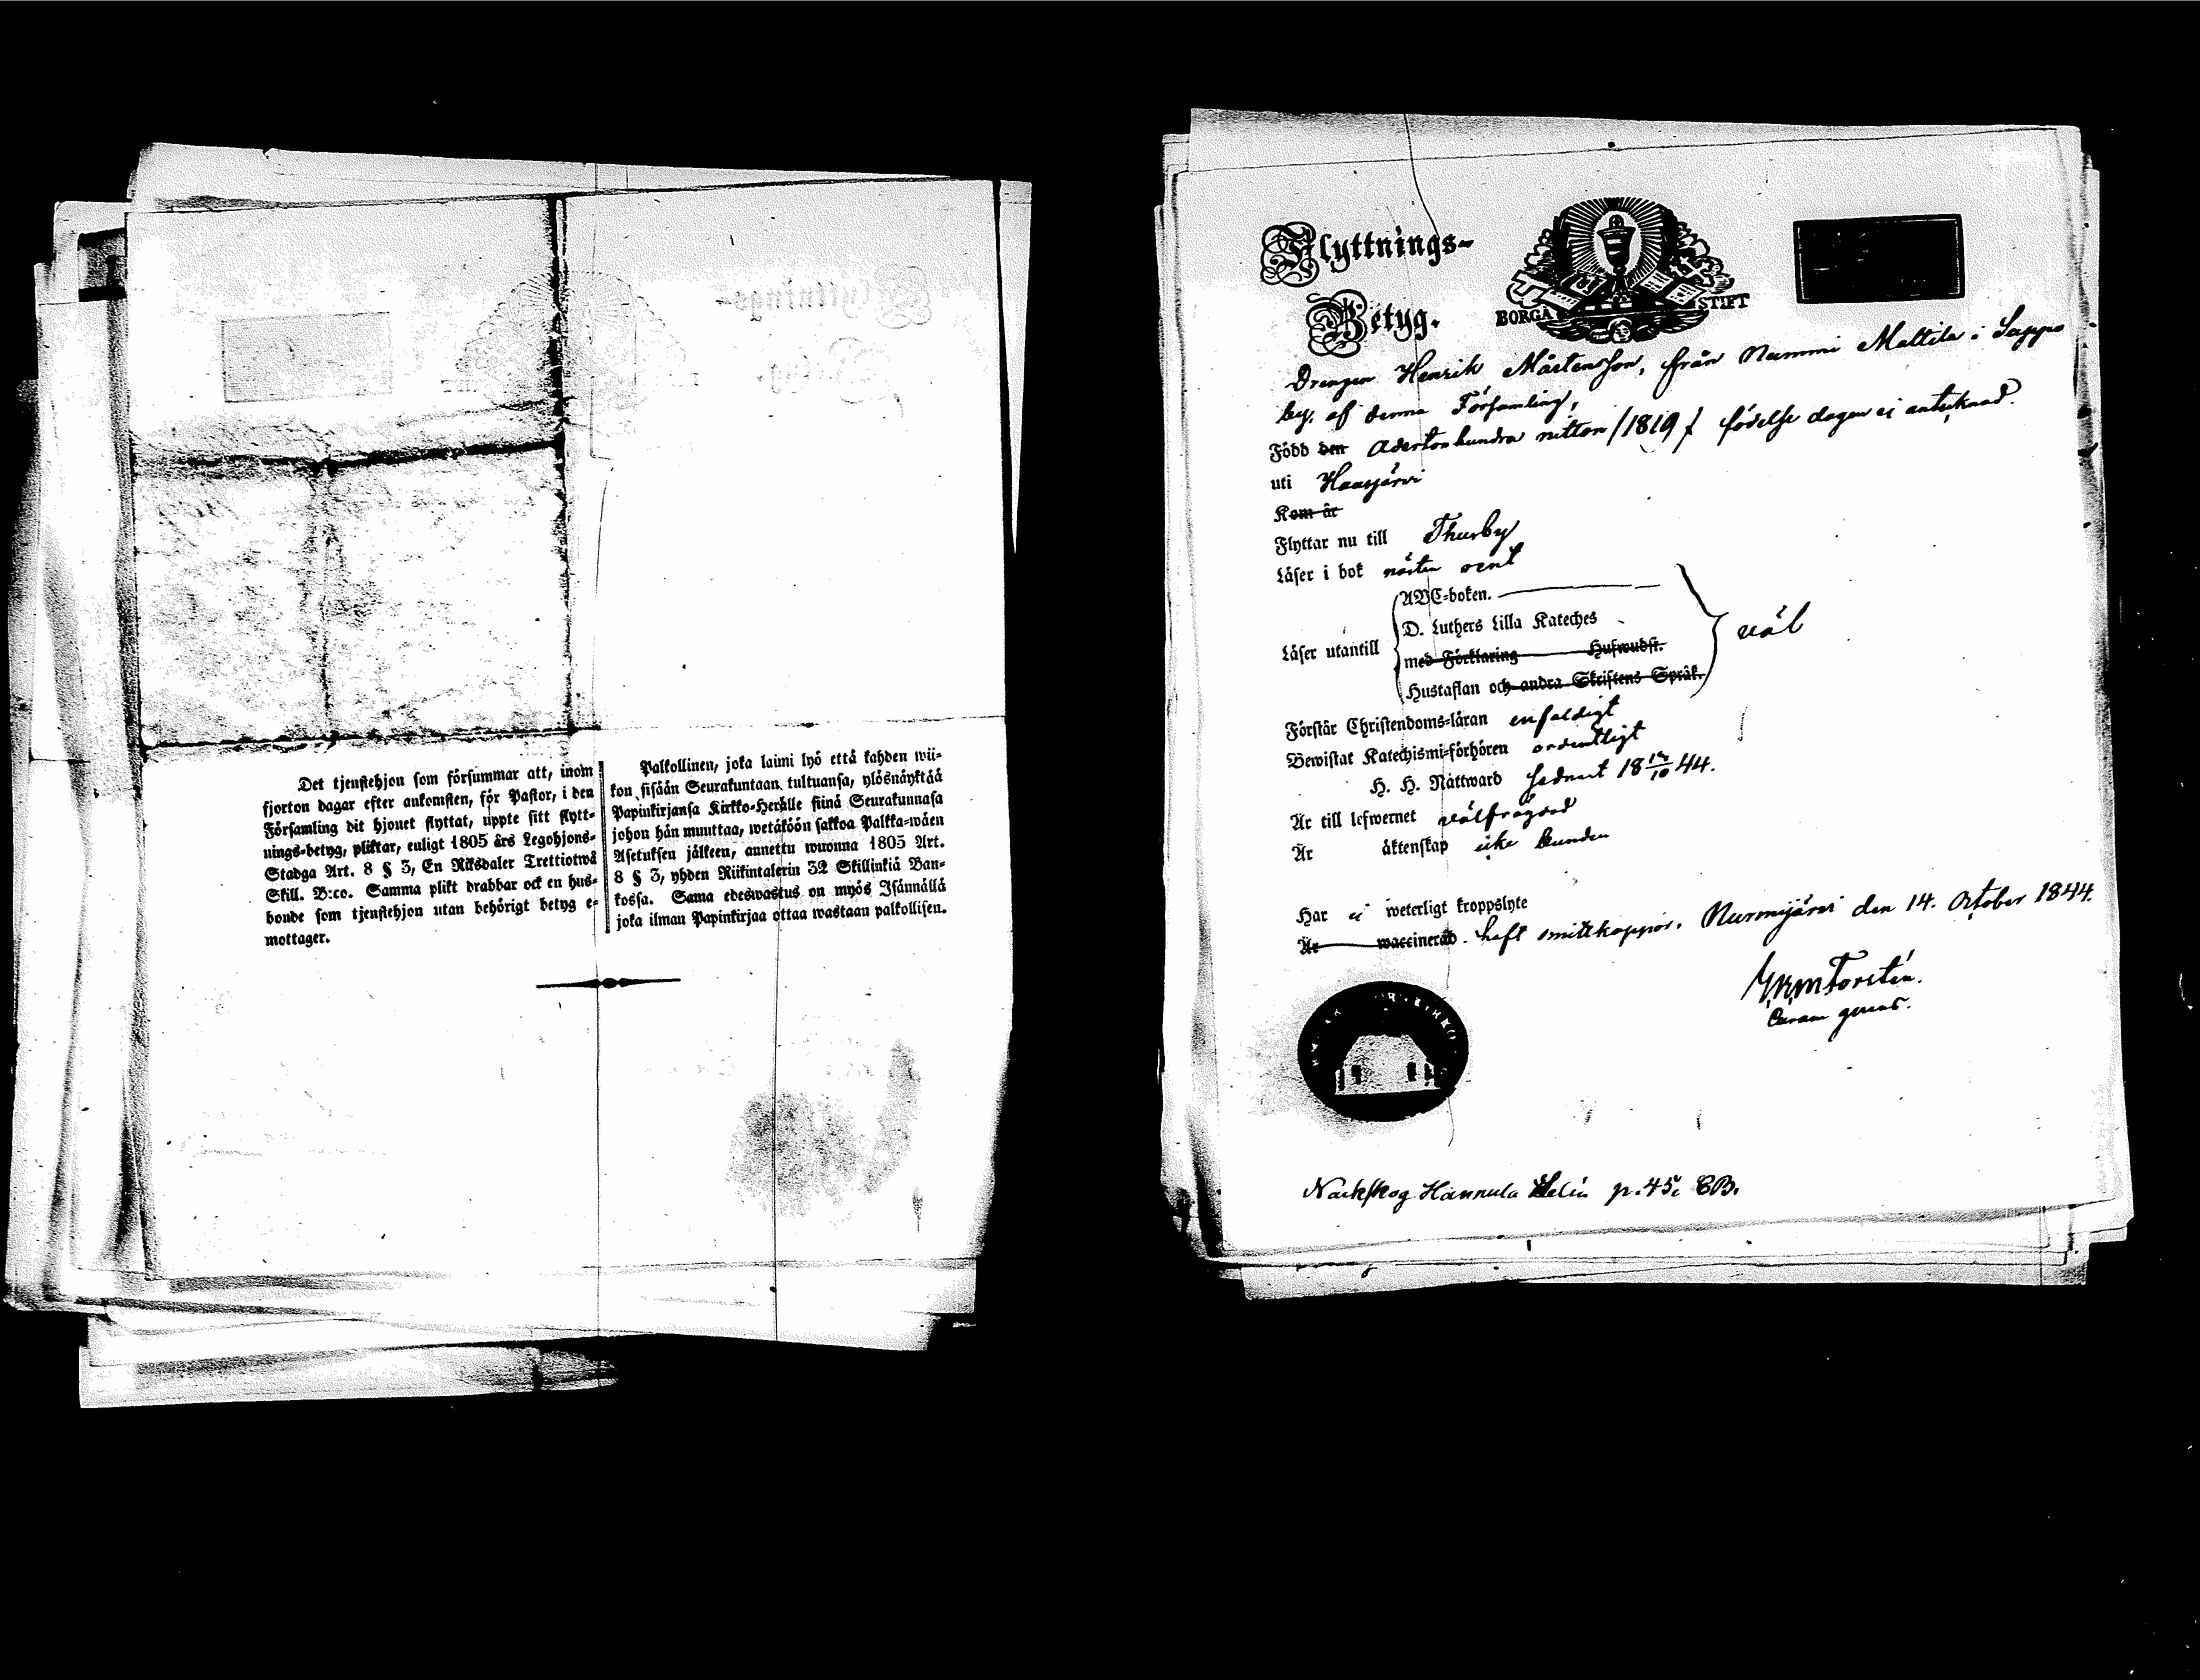 Det tjenstehjon som försummar att, inom
fjorton dagar efter ankomsten, för Pastor, i den
Församling dit hjonet flyttat, uppte sitt flytt-
nings-betyg, pliktar, enligt 1805 års Legohjons-
Stadga Art. 8 § 3, En Riksdaler Trettiotwå
Skill. B:co. Samma plikt drabbar ock en hus-
bonde som tjenstehjon utan behörigt betyg e-
mottager.
Palkollinen, joka laimi lyö että kahden wii-
kon sisään Seurakuntaan tultuansa, ylösnäyktää
Papinkirjansa Kirkko-Herralle siinä Seurakunnasa
johon hän muuttaa, wetäköön sakkoa Palkka-wäen
Asetuksen jälkeen, annettu wuonna 1805 Art.
8 § 3, yhden Riikintalerin 32 Skillinkiä Ban-
kossa. Sama edeswastus on myös Isännällä
joka ilman Papinkirjaa ottaa wastaan palkollisen.
Flyttnings-
Betyg.
BORGÅ STIFT
Drengen Henrik Mårtensson, från Nummi Mattila i Sappo
by, af denna Församling,
Född den Adertonhundra nitton /1819/ födelse dagen ei antecknad.
uti Hausjärvi
Kom år
Flyttar nu till Thusby
Läser i bok nästan rent
ABC-boken.
D. Luthers Lilla Kateches
Läser utantill med Förklaring Hufwudst. väl
Hustaflan och andra Skriftens Språk.
Förstår Christendoms-läran enfaldigt
Bewistat Katechismi-förhören ordentligt
H. H. Nattward sednast 18 /10 44.
Är till lefwernet välfrägdad
Är äktenskap icke bunden
Har ei weterligt kroppslyte
Är waccinerad. haft smittkoppor. Nurmijärvi den 14. October 1844.
Forstén.
Curam gerens.
Nackskog Hannula Helin p. 45, CB.